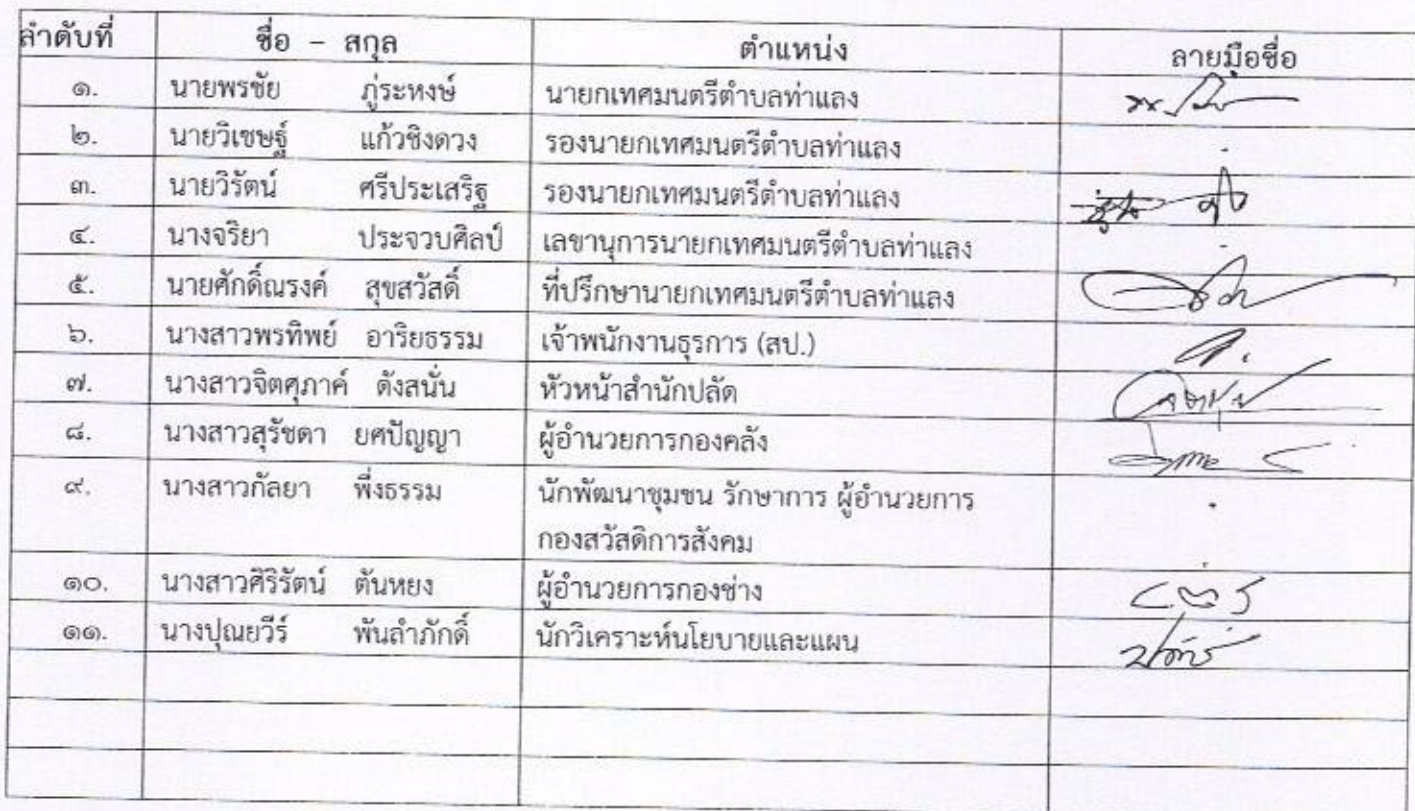 ลำดับที่ ชื่อ – สกุล ตำแหน่ง ลายมือชื่อ
๑. นายพรชัย ภู่ระหงษ์ นายกเทศมนตรีตำบลท่าแลง
๒. นายวิเชษฐ์ แก้วชิงดวง รองนายกเทศมนตรีตำบลท่าแลง
๓. นายวิรัตน์ ศรีประเสริฐ รองนายกเทศมนตรีตำบลท่าแลง
๔. นางจริยา ประจวบศิลป์ เลขานุการนายกเทศมนตรีตำบลท่าแลง
๕. นายศักดิ์ณรงค์ สุขสวัสดิ์ ที่ปรึกษานายกเทศมนตรีตำบลท่าแลง
๖. นางสาวพรทิพย์ อาริยธรรม เจ้าพนักงานธุรการ (สป.)
๗. นางสาวจิตศุภาค์ ดังสนั่น หัวหน้าสำนักปลัด
๘. นางสาวสุรัชดา ยศปัญญา ผู้อำนวยการกองคลัง
๙. นางสาวกัลยา พึ่งธรรม นักพัฒนาชุมชน รักษาการ ผู้อำนวยการ
กองสวัสดิการสังคม
๑๐. นางสาวศิริรัตน์ ตันหยง ผู้อำนวยการกองช่าง
๑๑. นางปุณยวีร์ พันลำภักดิ์ นักวิเคราะห์นโยบายและแผน